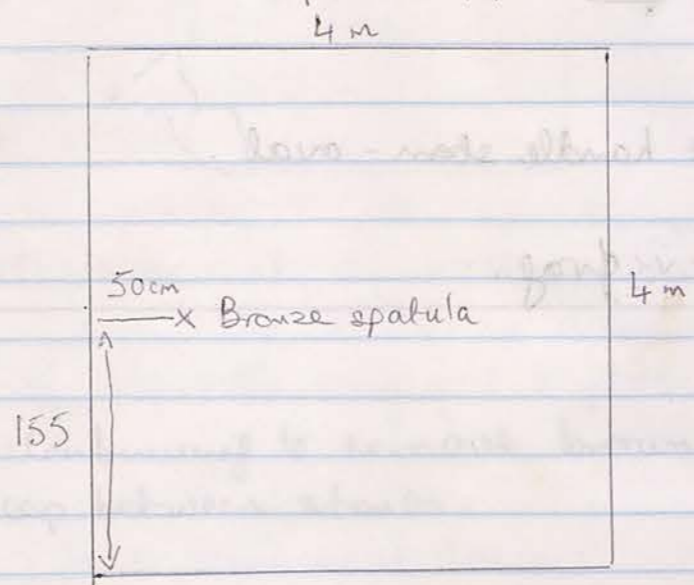 4 m
50cm
x Bronze spatula
4 m
155